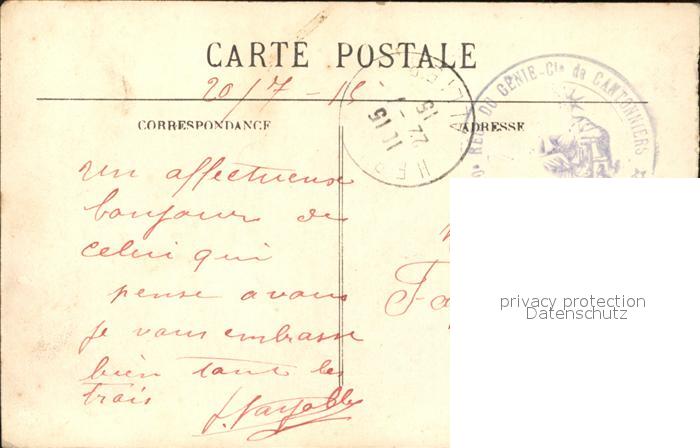 CARTE POSTALE
20/7-15
CORRESPONDANCE
ADRESSE
22 - 15
11 15
RÉGt DU GÉNIE-Cie de CANTONNIERS
un affectueux
bonjour de
celui qui
pense a vous
je vous embrasse
bien tout les
trois
privacy protection
Datenschutz